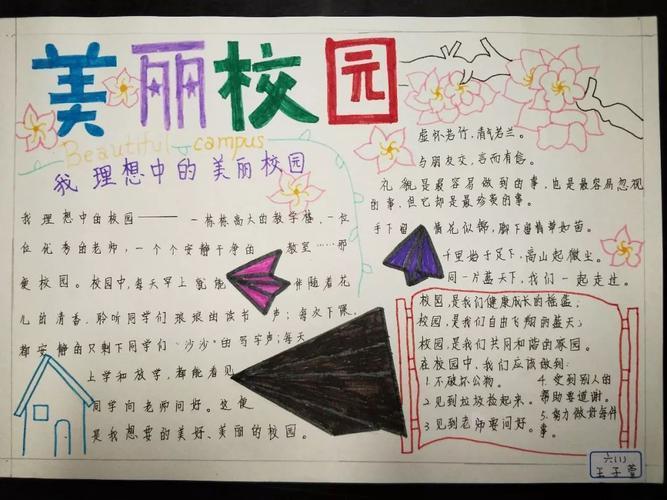 美丽校园
Beautiful campus
我理想中的美丽校园
我理想中的校园——一栋栋高大的教学楼,一位
位优秀的老师,一个个安静干净的教室……那
便校园。校园中,每天早上就能伴随着花
儿的清香,聆听同学们琅琅的读书声;每次下课,
都安静的只剩下同学们“沙沙”的写字声;每天
上学和放学,都能看见
同学向老师问好。这便
是我想要的美好、美丽的校园。
虚怀若竹,清气若兰。
与朋友交,言而有信。
礼貌是最容易做到的事,也是最容易忽视
的事,但它却是最珍贵的事。
手下留情花似锦,脚下留情草如茵。
千里始于足下,高山起微尘。
同一片蓝天下,我们一起走过。
校园,是我们健康成长的摇篮;
校园,是我们自由飞翔的蓝天;
校园,是我们共同和谐的家园。
在校园中,我们应该做到:
1.不破坏公物。
2.见到垃圾捡起来。
3.见到老师要问好。
4.受到别人的
帮助要道谢。
5.努力做好每件
事。
六(1)
王子萱